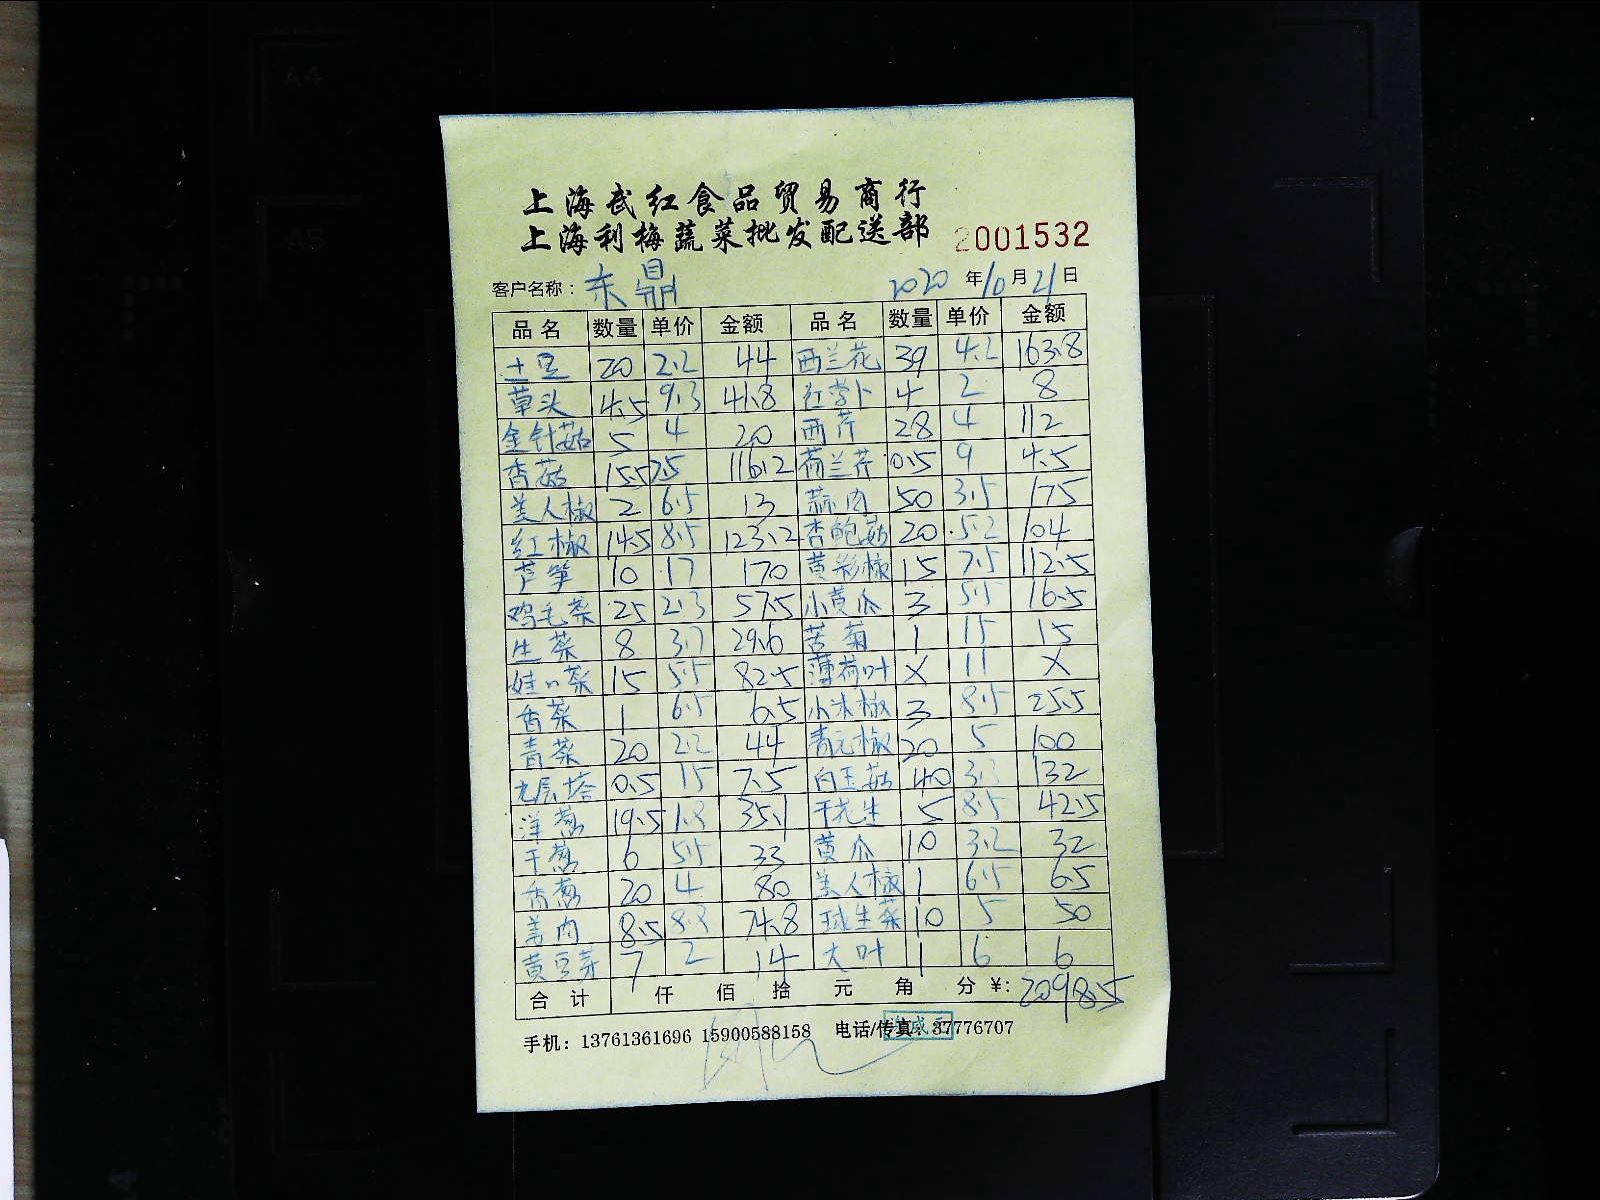 上海武红食品贸易商行
上海利梅蔬菜批发配送部 2001532
客户名称：东鼎 2020年10月21日
品名 数量 单价 金额 品名 数量 单价 金额
土豆 20 2.2 44 西兰花 39 4.2 163.8
草头 4.5 9.3 41.8 红萝卜 4 2 8
金针菇 5 4 20 西芹 28 4 112
香菇 15.5 7.5 116.2 荷兰芹 0.5 9 4.5
美人椒 2 6.5 13 蒜肉 50 3.5 175
红椒 14.5 8.5 123.2 杏鲍菇 20 5.2 104
芦笋 10 17 170 黄彩椒 15 7.5 112.5
鸡毛菜 25 2.3 57.5 小黄瓜 3 5.5 16.5
生菜 8 3.7 29.6 苦菊 1 15 15
娃娃菜 15 5.5 82.5 薄荷叶 X 11 X
香菜 1 6.5 6.5 小米椒 3 8.5 25.5
青菜 20 2.2 44 青元椒 20 5 100
九层塔 0.5 15 7.5 白玉菇 40 3.3 132
洋葱 19.5 1.8 35.1 干花生 5 8.5 42.5
干葱 6 5.5 33 黄瓜 10 3.2 32
香葱 20 4 80 美人椒 1 6.5 6.5
姜肉 8.5 8.8 74.8 球生菜 10 5 50
黄豆芽 7 2 14 大叶 1 6 6
合计 仟 佰 拾 元 角 分 ¥: 2098.5
手机：13761361696 15900588158 电话/传真：37776707